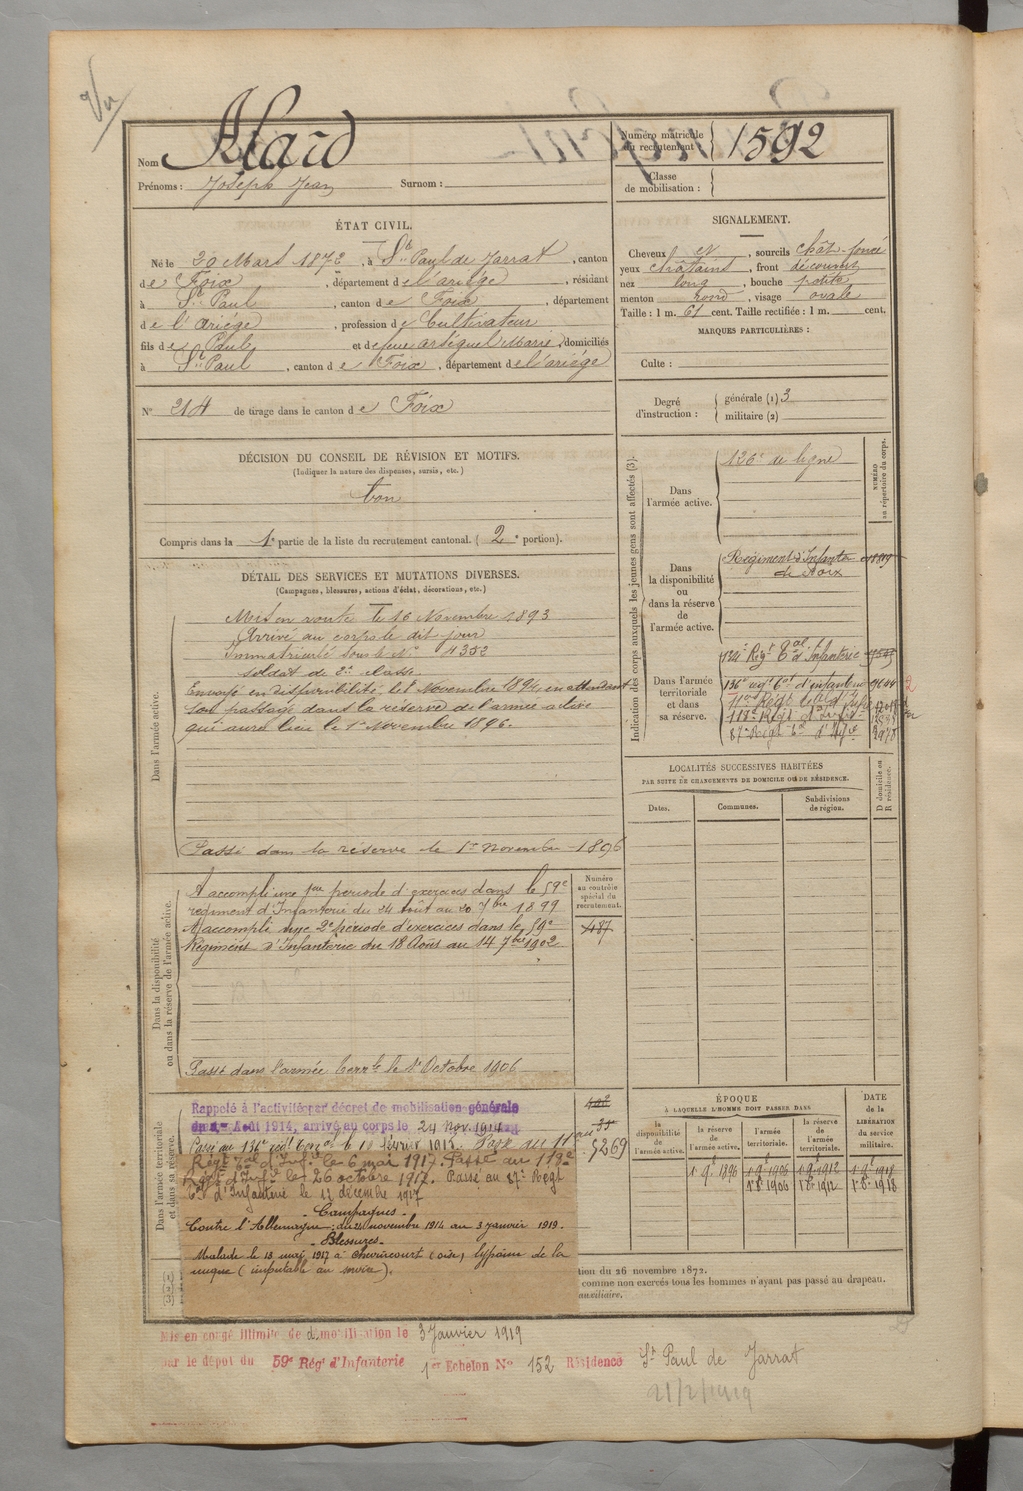 Vu
Nom Alard
Prénoms : Joseph Jean Surnom :
Numéro matricule du recrutement 1592
Classe de mobilisation :
ÉTAT CIVIL.
Né le 20 Mars 1872, à St Paul de Jarrat, canton
de Foix, département de l'ariége, résidant
à St Paul, canton de Foix, département
de l'ariége, profession de Cultivateur
fils de Paul et de feue arséguel Marie, domiciliés
à St Paul, canton de Foix, département de l'ariége
No 214 de tirage dans le canton de Foix
SIGNALEMENT.
Cheveux et, sourcils chât-foncé
yeux châtains, front découvert
nez long, bouche petite
menton rond, visage ovale
Taille : 1 m. 61 cent. Taille rectifiée : 1 m. cent.
MARQUES PARTICULIÈRES :
Culte :
Degré d'instruction : générale (1) 3
militaire (2)
DÉCISION DU CONSEIL DE RÉVISION ET MOTIFS.
(Indiquer la nature des dispenses, sursis, etc.)
bon
Compris dans la 1e partie de la liste du recrutement cantonal. (2e portion).
DÉTAIL DES SERVICES ET MUTATIONS DIVERSES.
(Campagnes, blessures, actions d'éclat, décorations, etc.)
Dans l'armée active.
Mis en route le 16 Novembre 1893
Arrivé au corps le dit jour
Immatriculé sous le No 4352
soldat de 2e classe
Envoyé en disponibilité le 1 Novembre 1894, en attendant
son passage dans la réserve de l'armée active
qui aura lieu le 1er Novembre 1896.
Passé dans la réserve le 1er Novembre 1896
Dans la disponibilité ou dans la réserve de l'armée active.
A accompli une 1ère période d'exercices dans le 59e
régiment d'Infanterie du 24 Août au 20 7bre 1899
A accompli une 2e période d'exercices dans le 59e
Régiment d'Infanterie du 18 Août au 14 7bre 1902
Passé dans l'armée terrle le 1er Octobre 1906
Numéro au contrôle spécial du recrutement.
487
Dans l'armée territoriale et dans sa réserve.
Rappelé à l'activité par décret de mobilisation générale
du 1er Août 1914, arrivé au corps le 24 Nov. 1914
Passé au 136e régt terral le février 1915. Passé au 11e
Régt Tal d'Infie le 6 mai 1917. Passé au 118e
Régt d'Infie le 26 octobre 1917. Passé au 87e Régt
Tal d'Infanterie le 13 décembre 1917
Campagnes
Contre l'Allemagne : du 24 novembre 1914 au 3 janvier 1919.
Blessures
Malade le 13 mai 1917 à Chevincourt (oise) lypôme de la
nuque (imputable au service).
5269
Indication des corps auxquels les jeunes gens sont affectés (3).
NUMÉRO au répertoire du corps.
Dans l'armée active.
126e de ligne
Dans la disponibilité ou dans la réserve de l'armée active.
Régiment d'Infanterie de Foix
Dans l'armée territoriale et dans sa réserve.
134e Régt Tal d'Infanterie
136e regt Tal d'infanterie
11e Régt Tal d'Infie
118e Régt d'Infie
87e Régt Tal d'Infie 2978
LOCALITÉS SUCCESSIVES HABITÉES
PAR SUITE DE CHANGEMENTS DE DOMICILE OU DE RÉSIDENCE.
Dates. Communes. Subdivisions de région. D domicile ou R résidence.
ÉPOQUE
À LAQUELLE L'HOMME DOIT PASSER DANS
DATE de la LIBÉRATION du service militaire.
la disponibilité de l'armée active. la réserve de l'armée active. l'armée territoriale. la réserve de l'armée territoriale.
1 9e 1896 1 9e 1906 1 9e 1912 1 9e 1918
1 8e 1906 1 8e 1912 1 8e 1918
tion du 26 novembre 1872.
comme non exercés tous les hommes n'ayant pas passé au drapeau.
auxiliaire.
Mis en congé illimité de démobilisation le 3 Janvier 1919
par le dépôt du 59e Régt d'Infanterie 1er Echelon No 152 Résidence St Paul de Jarrat
21/2/1919